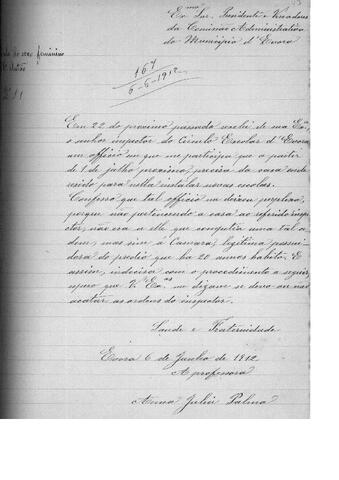 Ex.mo Snr. Presidente e Vereadores
da Comissão Administrativa
do Municipio d'Evora
do sexo feminino
167
6-6-1912
Em 22 do proximo passado recebi de sua Ex.a,
o senhor inspector do Circulo Escolar d'Evora,
um officio em que me participa que a partir
de 1 de julho proximo, precisa da casa onde
resido para nella installar novas escolas.
Confesso que tal officio me deixou perplexa,
porque não pertencendo a casa ao referido inspe-
ctor, não era a elle que competia uma tal or-
dem, mas sim á Camara, legitima possui-
dora do predio que ha 20 annos habito. E
assim, indecisa com o procedimento a seguir,
espero que V. Ex.as me digam se devo ou não
acatar as ordens do inspector.
Saude e Fraternidade
Evora 6 de Junho de 1912
A professora
Anna Julia Palma